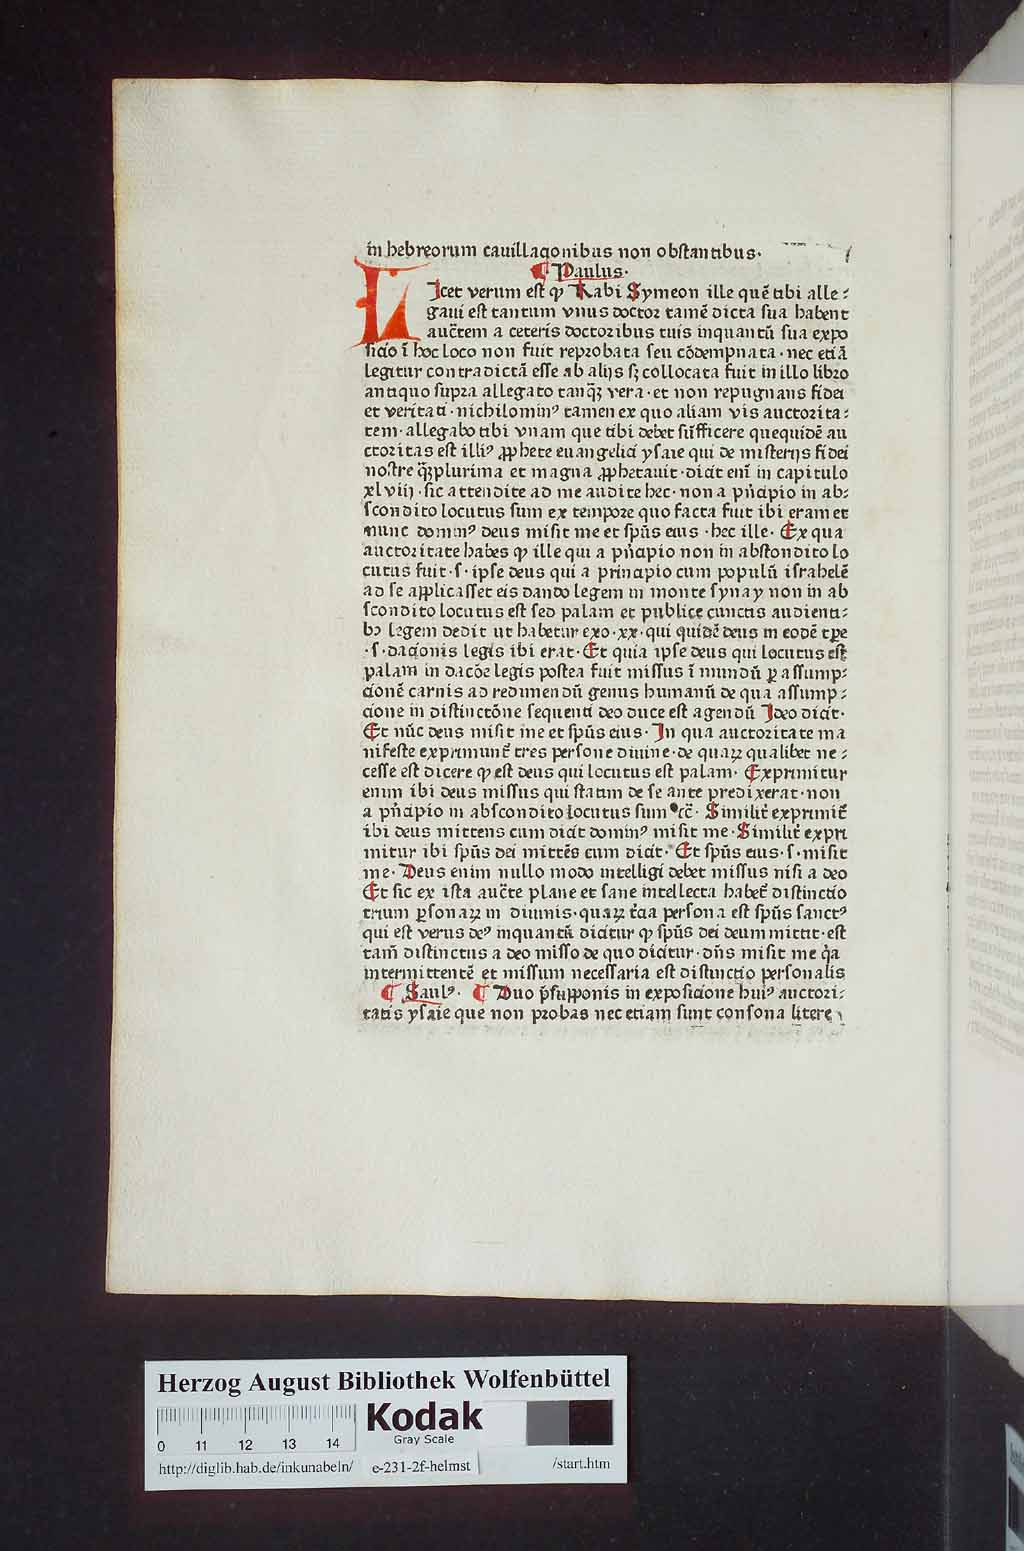 in hebreorum cauillacionibus non obstantibus·
¶ Paulus·
LIcet verum est ꝙ Rabi Symeon ille quē tibi alle⸗
gaui est tantum vnus doctor tamē dicta sua habent
auct̄em a ceteris doctoribus tuis inquantū sua expo
sicio ī hoc loco non fuit reprobata seu cōdempnata· nec etiā
legitur contradictā esse ab alijs sꝫ collocata fuit in illo libro
antiquo supra allegato tanq̄ꝫ vera· et non repugnans fidei
et veritati· nichilominꝰ tamen ex quo aliam vis auctorita⸗
tem· allegabo tibi vnam que tibi debet sufficere quequidē au
ctoritas est illiꝰ ꝓphete euangelici ysaie qui de misterijs fidei
nostre q̄ꝫplurima et magna ꝓphetauit· dicit enī in capitulo
xlviij· sic attendite ad me audite hec· non a pn̄cipio in ab⸗
scondito locutus sum ex tempore quo facta fuit ibi eram et
nunc dominꝰ deus misit me et spūs eius· hec ille· Ex qua
auctoritate habes ꝙ ille qui a pn̄cipio non in abscondito lo
cutus fuit· s· ipse deus qui a principio cum populū israhelē
ad se applicasset eis dando legem in monte synay non in ab
scondito locutus est sed palam et publice cunctis audienti⸗
bꝫ legem dedit ut habetur exo·xx· qui quidē deus in eodē tp̄e
·s· dacionis legis ibi erat· Et quia ipse deus qui locutus est
palam in dacōe legis postea fuit missus ī mundū ꝑ assump⸗
cionē carnis ad redimendū genus humanū de qua assump⸗
cione in distinctōne sequenti deo duce est agendū Ideo dicit·
Et nūc deus misit me et spūs eius· In qua auctoritate ma
nifeste exprimunt̄ tres persone diuine· de quaꝝ qualibet ne⸗
cesse est dicere ꝙ est deus qui locutus est palam· Exprimitur
enim ibi deus missus qui statim de se ante predixerat· non
a pn̄cipio in abscondito locutus sum ⁊cc̄· Similit̄ exprimit̄
ibi deus mittens cum dicit dominꝰ misit me· Similit̄ expri
mitur ibi spūs dei mittēs cum dicit· Et spūs eius· s· misit
me· Deus enim nullo modo intelligi debet missus nisi a deo
Et sic ex ista auct̄te plane et sane intellecta habet̄ distinctio
trium ꝑsonaꝝ in diuinis· quaꝝ t̄cia persona est spūs sanctꝰ
qui est verus deꝰ inquantū dicitur ꝙ spūs dei deum mittit· est
tam̄ distinctus a deo misso de quo dicitur· dn̄s misit me q̄a
intermittentē et missum necessaria est distinctio personalis
¶ Saulꝰ· ¶ Duo p̄supponis in exposicione huiꝰ auctori⸗
tatis ysaie que non probas nec etiam sunt consona litere
Herzog August Bibliothek Wolfenbüttel
Kodak
Gray Scale
0 11 12 13 14
http://diglib.hab.de/inkunabeln/ e-231-2f-helmst /start.htm